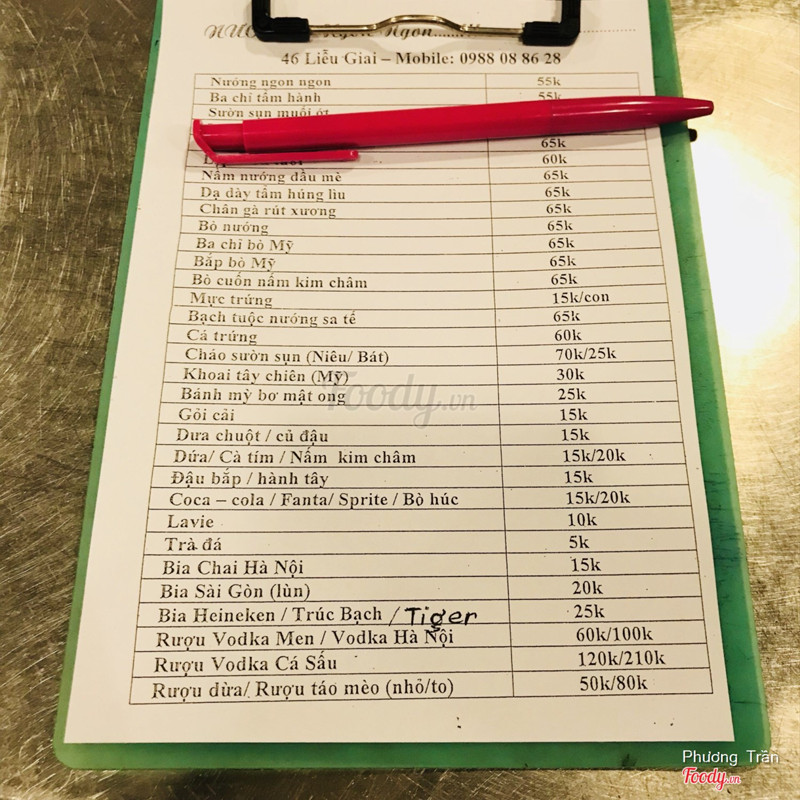 Ngon.......
46 Liễu Giai – Mobile: 0988 08 86 28
Nướng ngon ngon 55k
Ba chỉ tẩm hành 55k
Sườn sụn muối ớt
65k
60k
Nầm nướng dầu mè 65k
Dạ dày tẩm húng lìu 65k
Chân gà rút xương 65k
Bò nướng 65k
Ba chỉ bò Mỹ 65k
Bắp bò Mỹ 65k
Bò cuốn nấm kim châm 65k
Mực trứng 15k/con
Bạch tuộc nướng sa tế 65k
Cá trứng 60k
Cháo sườn sụn (Niêu/ Bát) 70k/25k
Khoai tây chiên (Mỹ) 30k
Bánh mỳ bơ mật ong 25k
Gỏi cải 15k
Dưa chuột / củ đậu 15k
Dứa/ Cà tím / Nấm kim châm 15k/20k
Đậu bắp / hành tây 15k
Coca – cola / Fanta/ Sprite / Bò húc 15k/20k
Lavie 10k
Trà đá 5k
Bia Chai Hà Nội 15k
Bia Sài Gòn (lùn) 20k
Bia Heineken / Trúc Bạch / Tiger 25k
Rượu Vodka Men / Vodka Hà Nội 60k/100k
Rượu Vodka Cá Sấu 120k/210k
Rượu dừa/ Rượu táo mèo (nhỏ/to) 50k/80k
Foody.vn
Phương Trần
Foody.vn